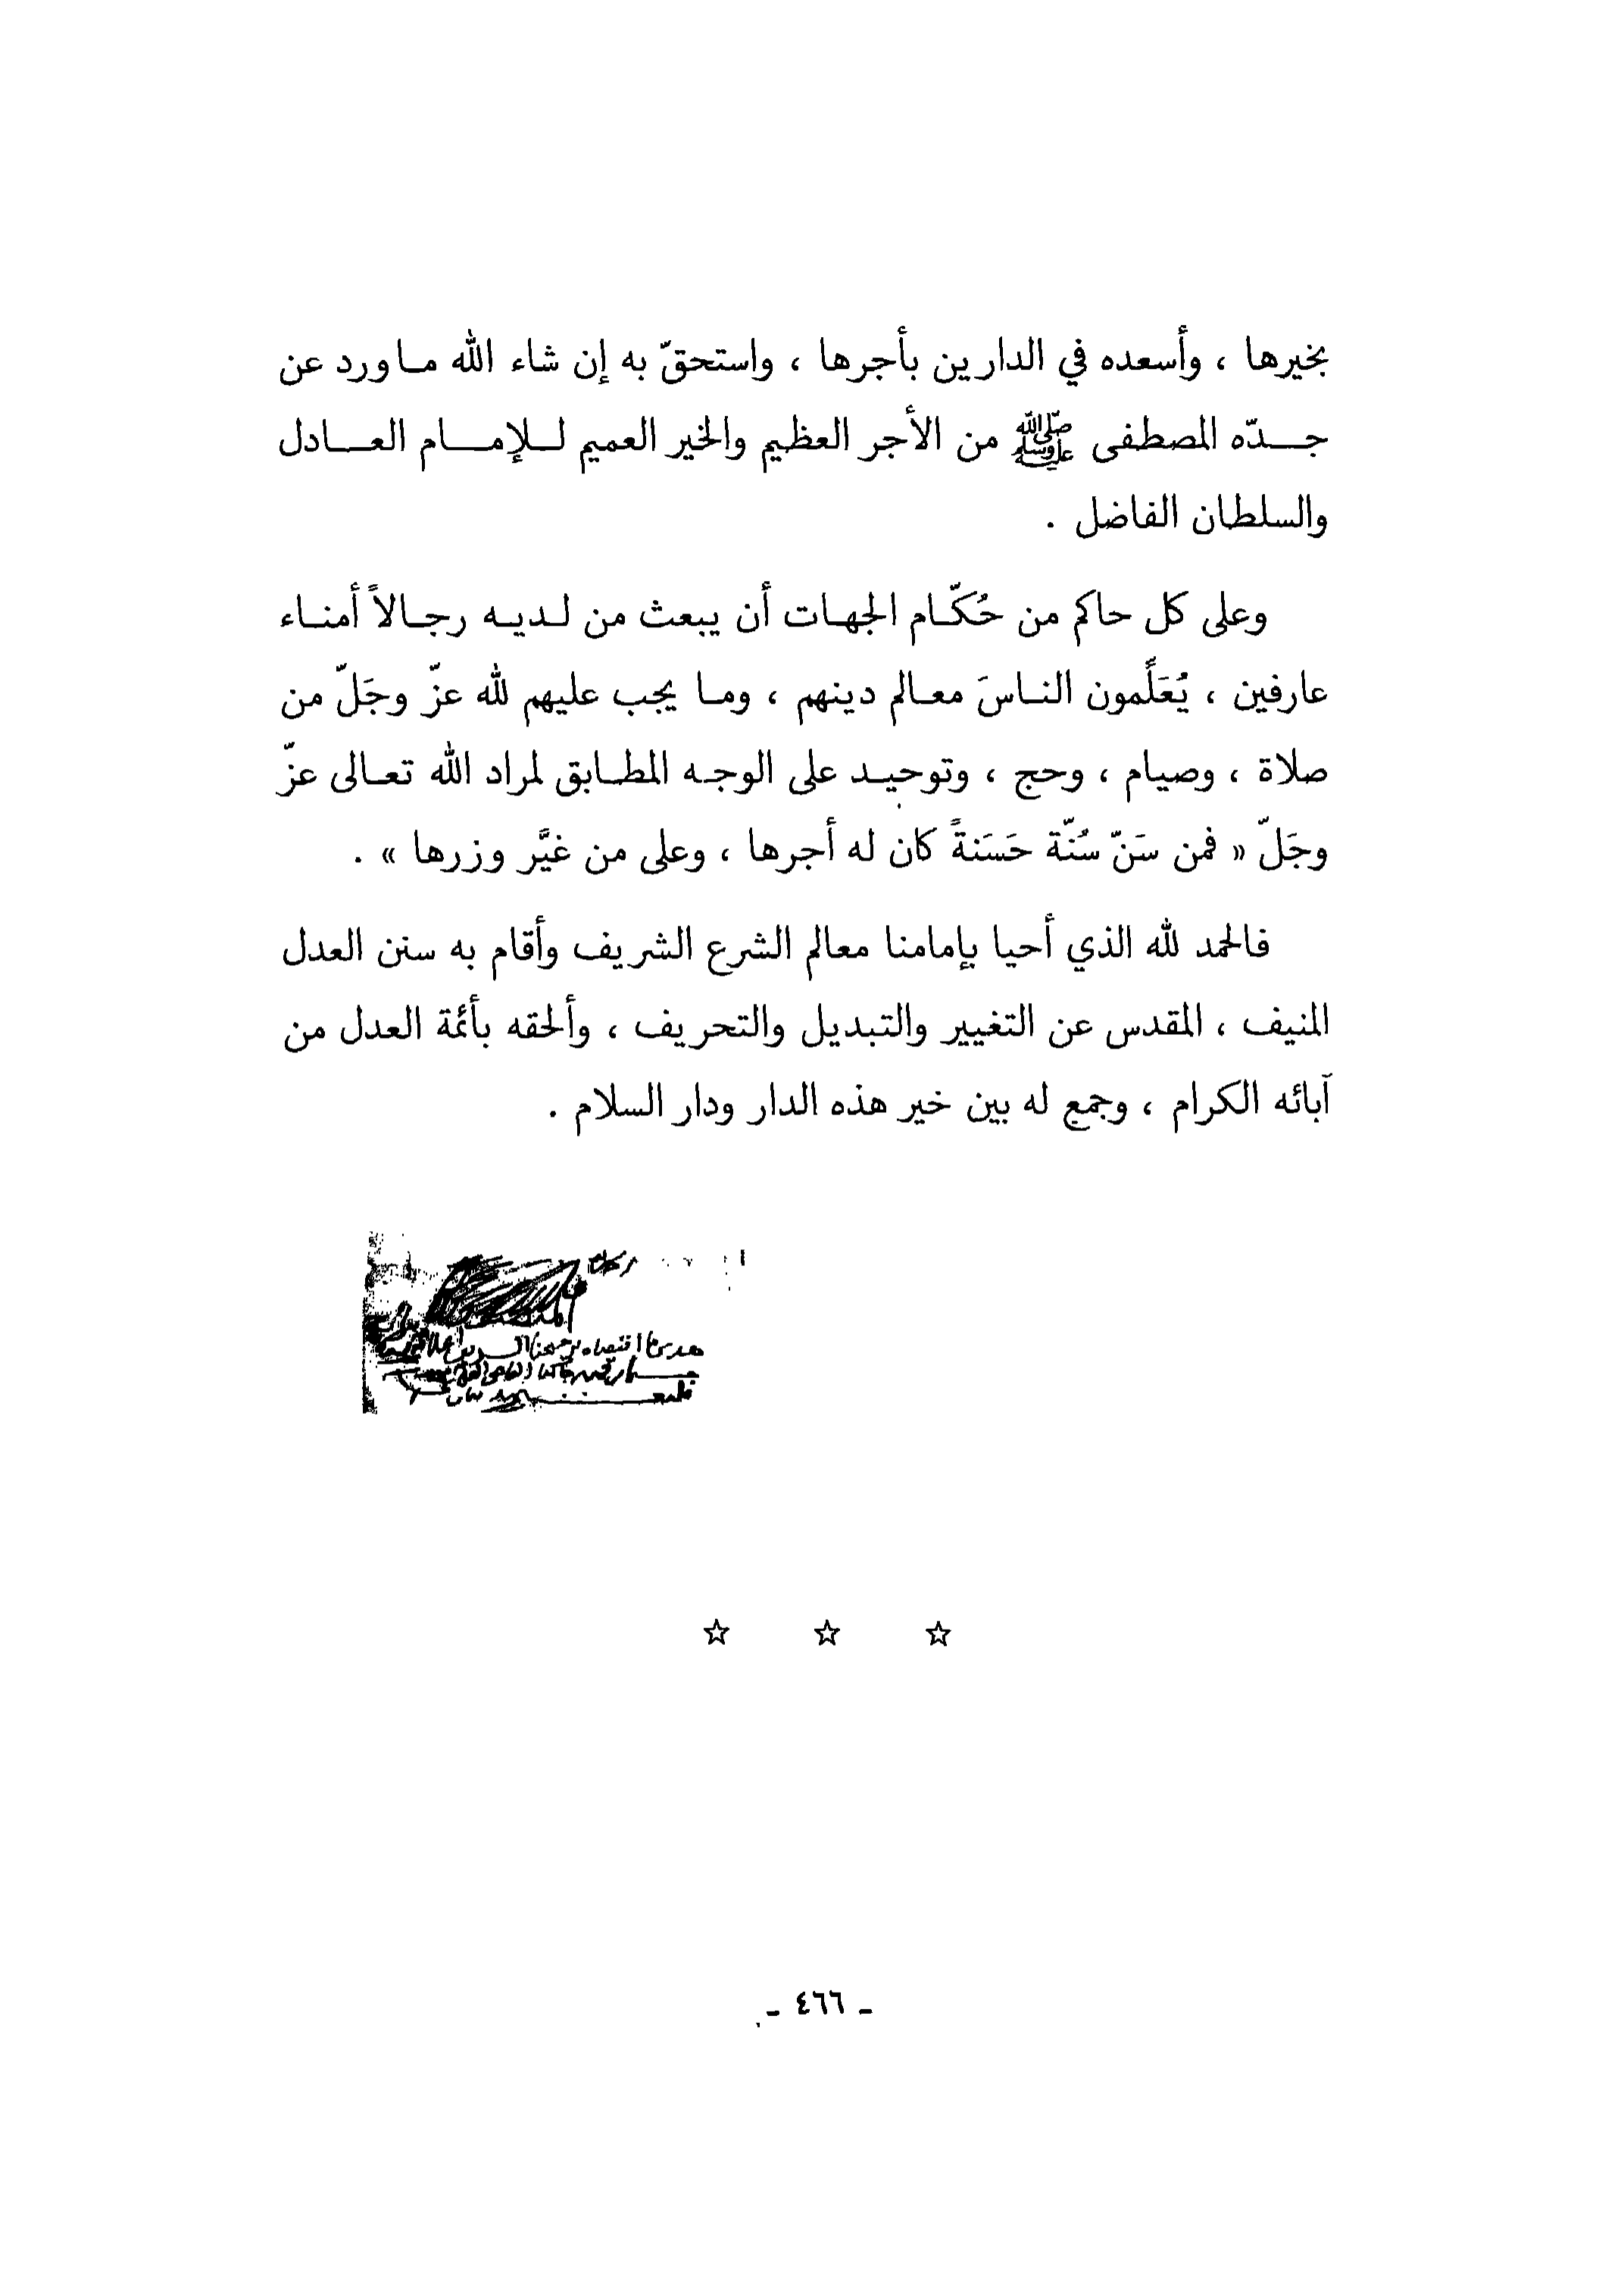 بخيرها ، وأسعده في الدارين بأجرها ، واستحقّ به إن شاء الله ما ورد عن
جدّه المصطفى ﷺ من الأجر العظيم والخير العميم للإمام العادل
والسلطان الفاضل .
وعلى كل حاكم من حُكّام الجهات أن يبعث من لديه رجالاً أمناء
عارفين ، يُعَلِّمون الناسَ معالم دينهم ، وما يجب عليهم لله عزّ وجَلّ من
صلاة ، وصيام ، وحج ، وتوحيد على الوجه المطابق لمراد الله تعالى عزّ
وجَلّ « فمن سَنّ سُنّة حَسَنةً كان له أجرها ، وعلى من غيَّر وزرها » .
فالحمد لله الذي أحيا بإمامنا معالم الشرع الشريف وأقام به سنن العدل
المنيف ، المقدس عن التغيير والتبديل والتحريف ، وألحقه بأئمة العدل من
آبائه الكرام ، وجمع له بين خير هذه الدار ودار السلام .
☆ ☆ ☆
ـ ٤٦٦ ـ